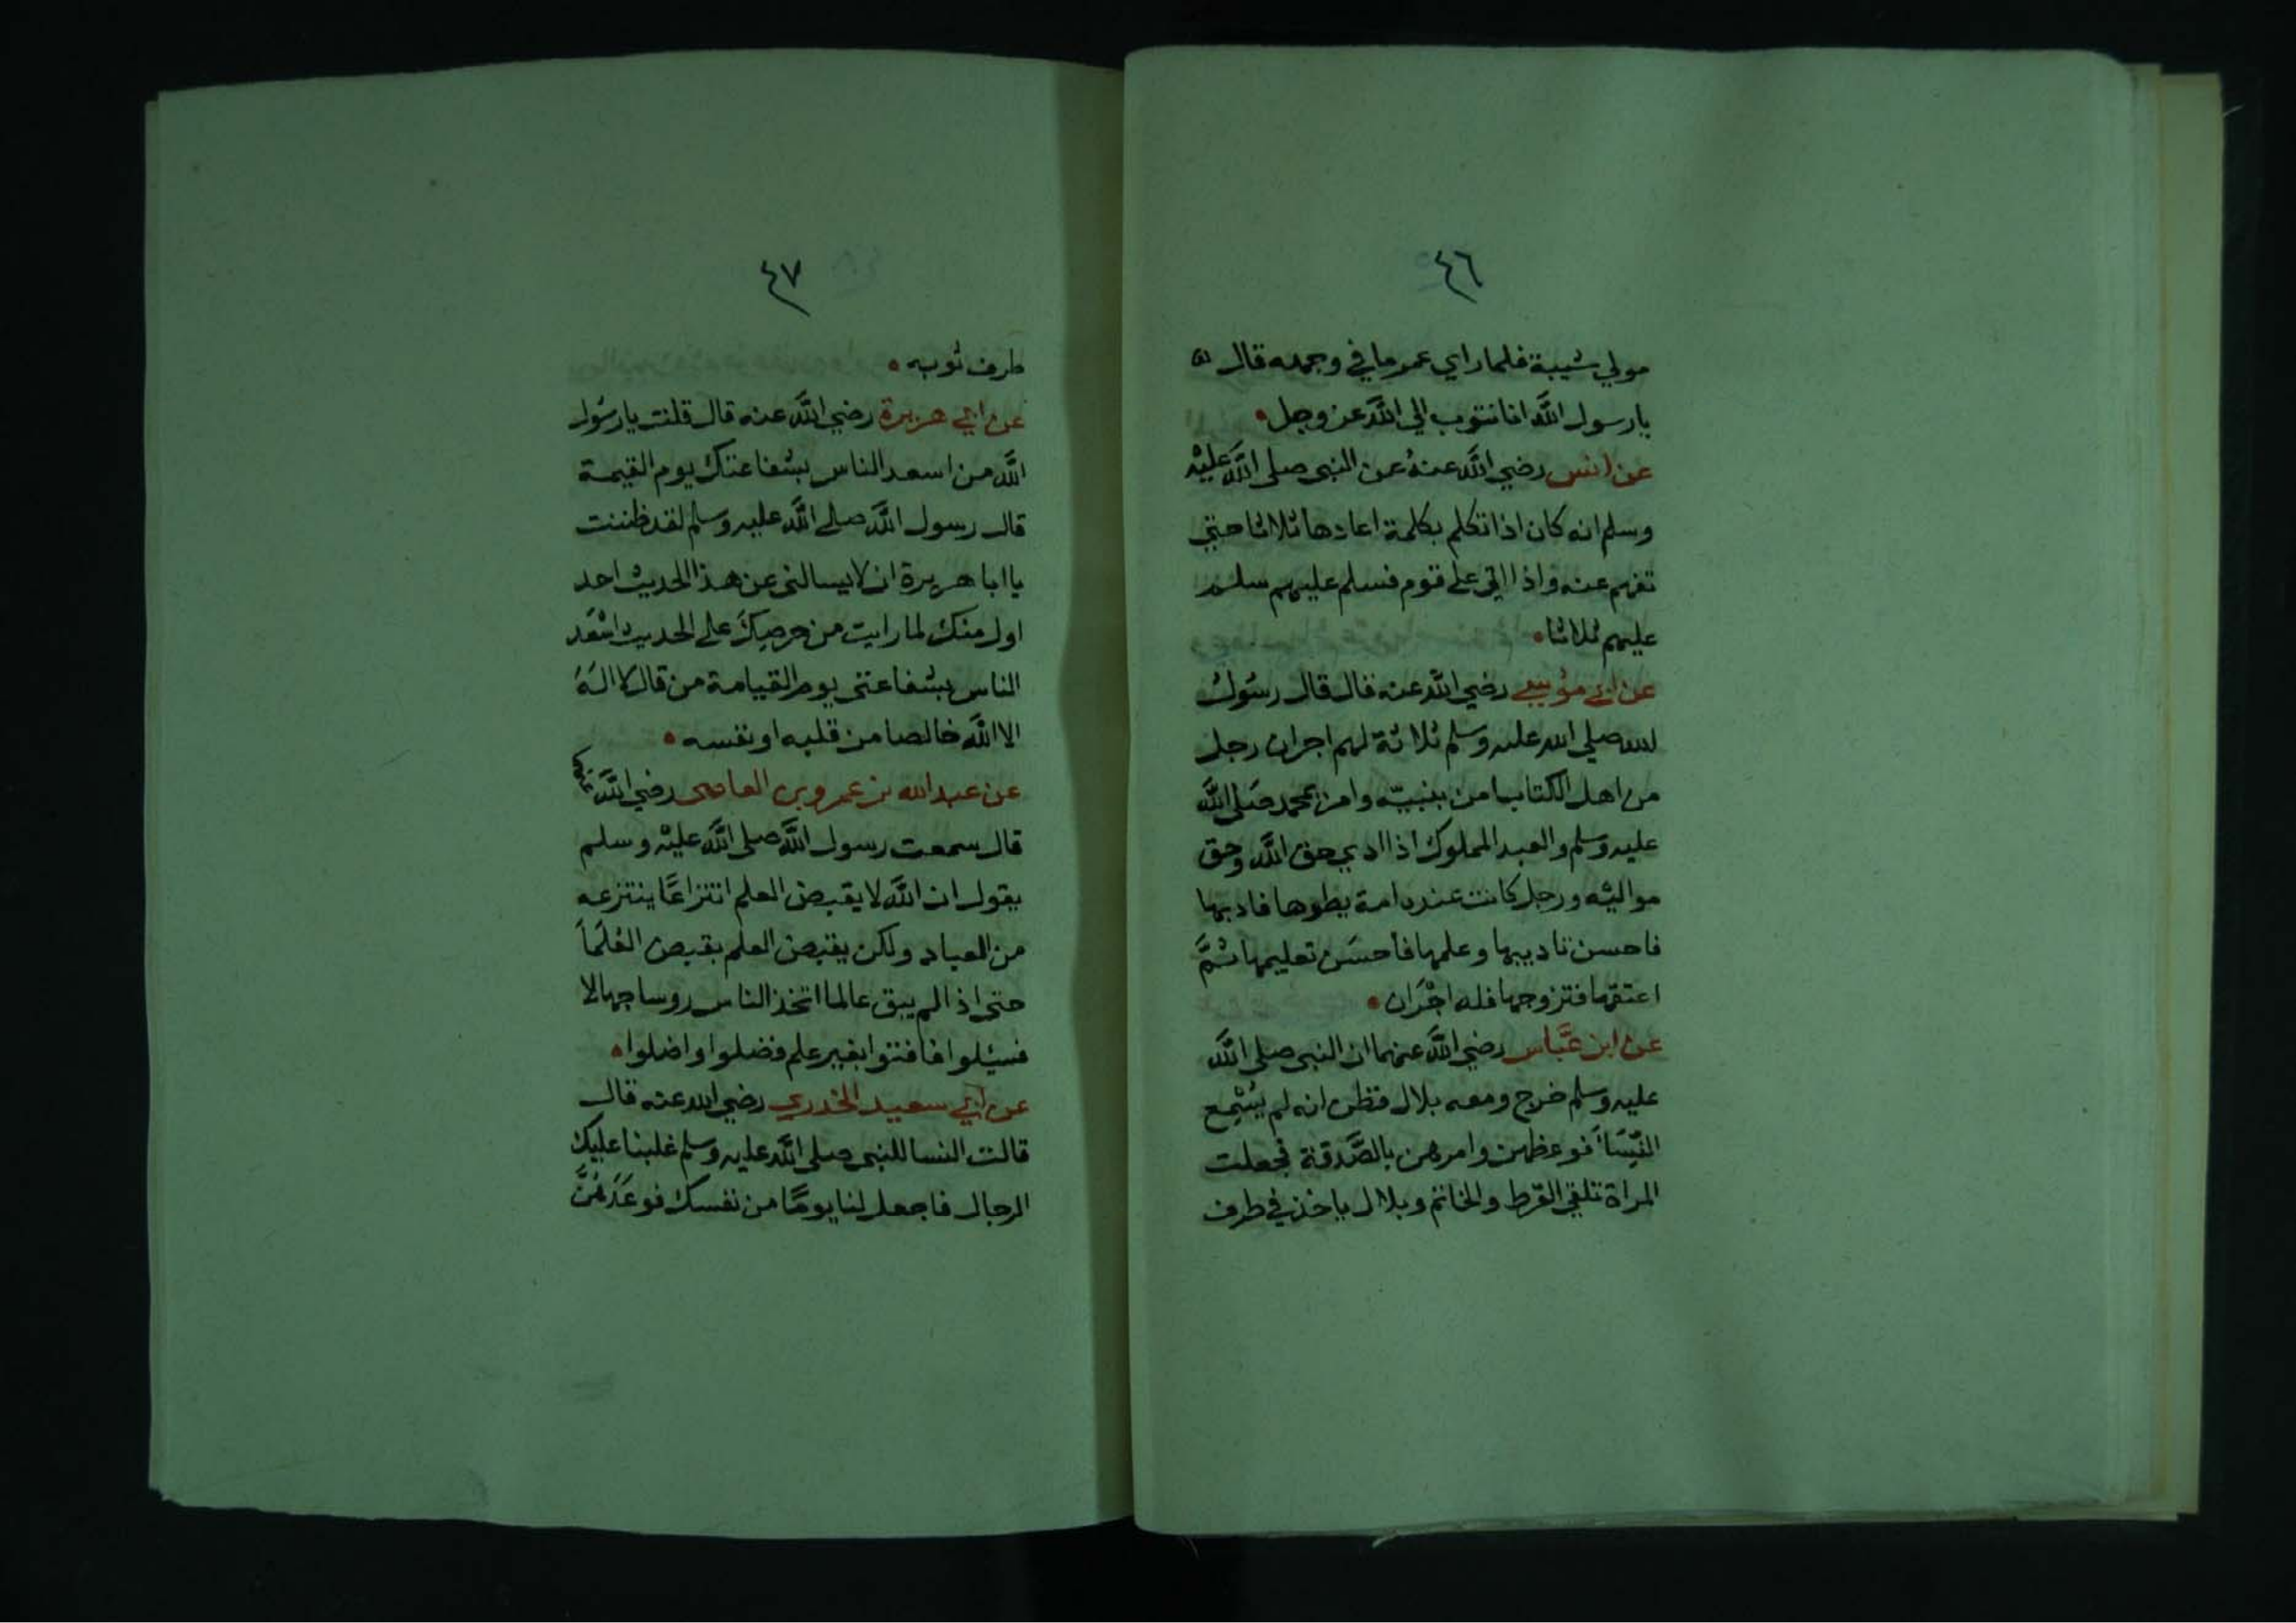 ٤٦
مولي شيبة فلما راي عمر ما في وجهه قال
يا رسول الله انا نتوب الي الله عز وجل
عن انس رضي الله عنهُ عن النبي صلى الله عَليْه
وسلم انه كان اذا تكلم بكلمة اعادها ثلاثا حتي
تفهم عنه واذا اتي على قوم فسلم عليهم سلم
عليهم ثلاثا
عن ابي موُسي رضي الله عنه قال قال رسُولُ
لله صلي الله عليه وسلم ثلاثة لهم اجران رجل
من اهل الكتاب امن بنبيّه وامن بمحمد صَلى الله
عليه وسلم والعبد المملوك اذا ادي حق الله وحق
مواليْه ورجل كانت عنده امة يطوها فادبها
فاحسن تاديبها وعلمها فأحسَن تعليمها ثمَّ
اعتقها فتزوجها فله اجْرَان
عن ابن عَّباس رضي الله عنهما ان النبي صلى الله
عليه وسلم خرج ومعه بلال فظن انه لم يسْمع
النّسَاَ فوعظهن وامرهن بالصَّدقة فجعلت
المراة تلقي القرط والخاتم وبلال ياخذ في طرف
٤٧
طرف ثوبه
عن ابي هريرة رضي الله عنه قال قلت يا رسُول
الله من اسعد الناس بشفاعتك يوم القيمة
قال رسول الله صلى الله عليه وسلم لقد ظننت
يا ابا هريرة ان لا يسالنى عن هذا الحديث احد
اول منك لما رايت من حرصِكَ على الحديث اسْعَد
الناس بشفاعتى يوم القيامة من قال لا الهَ
الا الله خالصا من قلبه او نفسه
عن عبد الله بن عمرو بن العاصى رضي الله عنهما
قال سمعت رسول الله صلى الله عليْه وسلم
يقول ان الله لا يقبض العلم انتزاعًا ينتزعه
من العباد ولكن يقبض العلم بقبض العُلَمَاَ
حتى اذا لم يبق عالما اتخذ الناس روسا جهالا
فسيلوا فافتوا بغير علم فضلوا واضلوا
عن ابي سعيد الخدري رضي الله عنه قال
قالت النسا للنبي صلى الله عليه وسلم غلبنا عليك
الرجال فاجعل لنا يومًا من نفسك فوعَدَهُنَّ